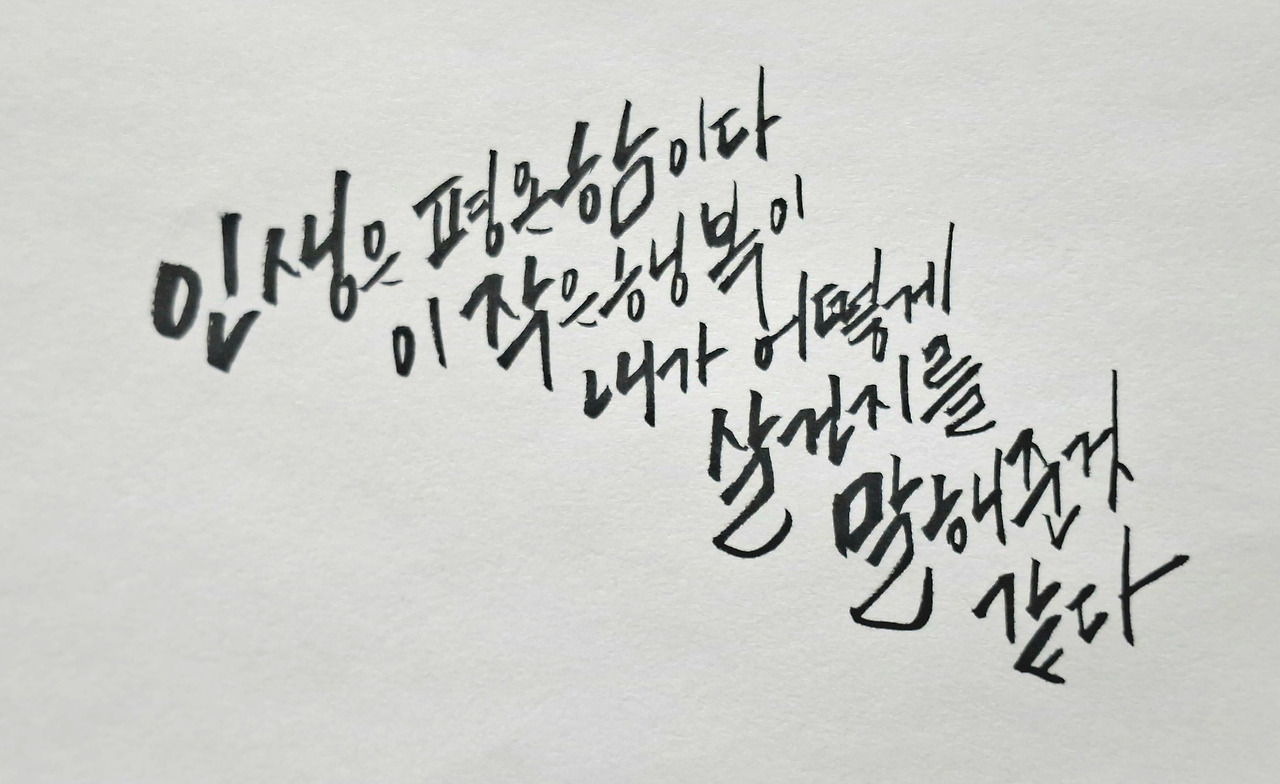 인생은 평온함이다
이 작은 행복이
내가 어떻게
살건지를
말해준거
같다